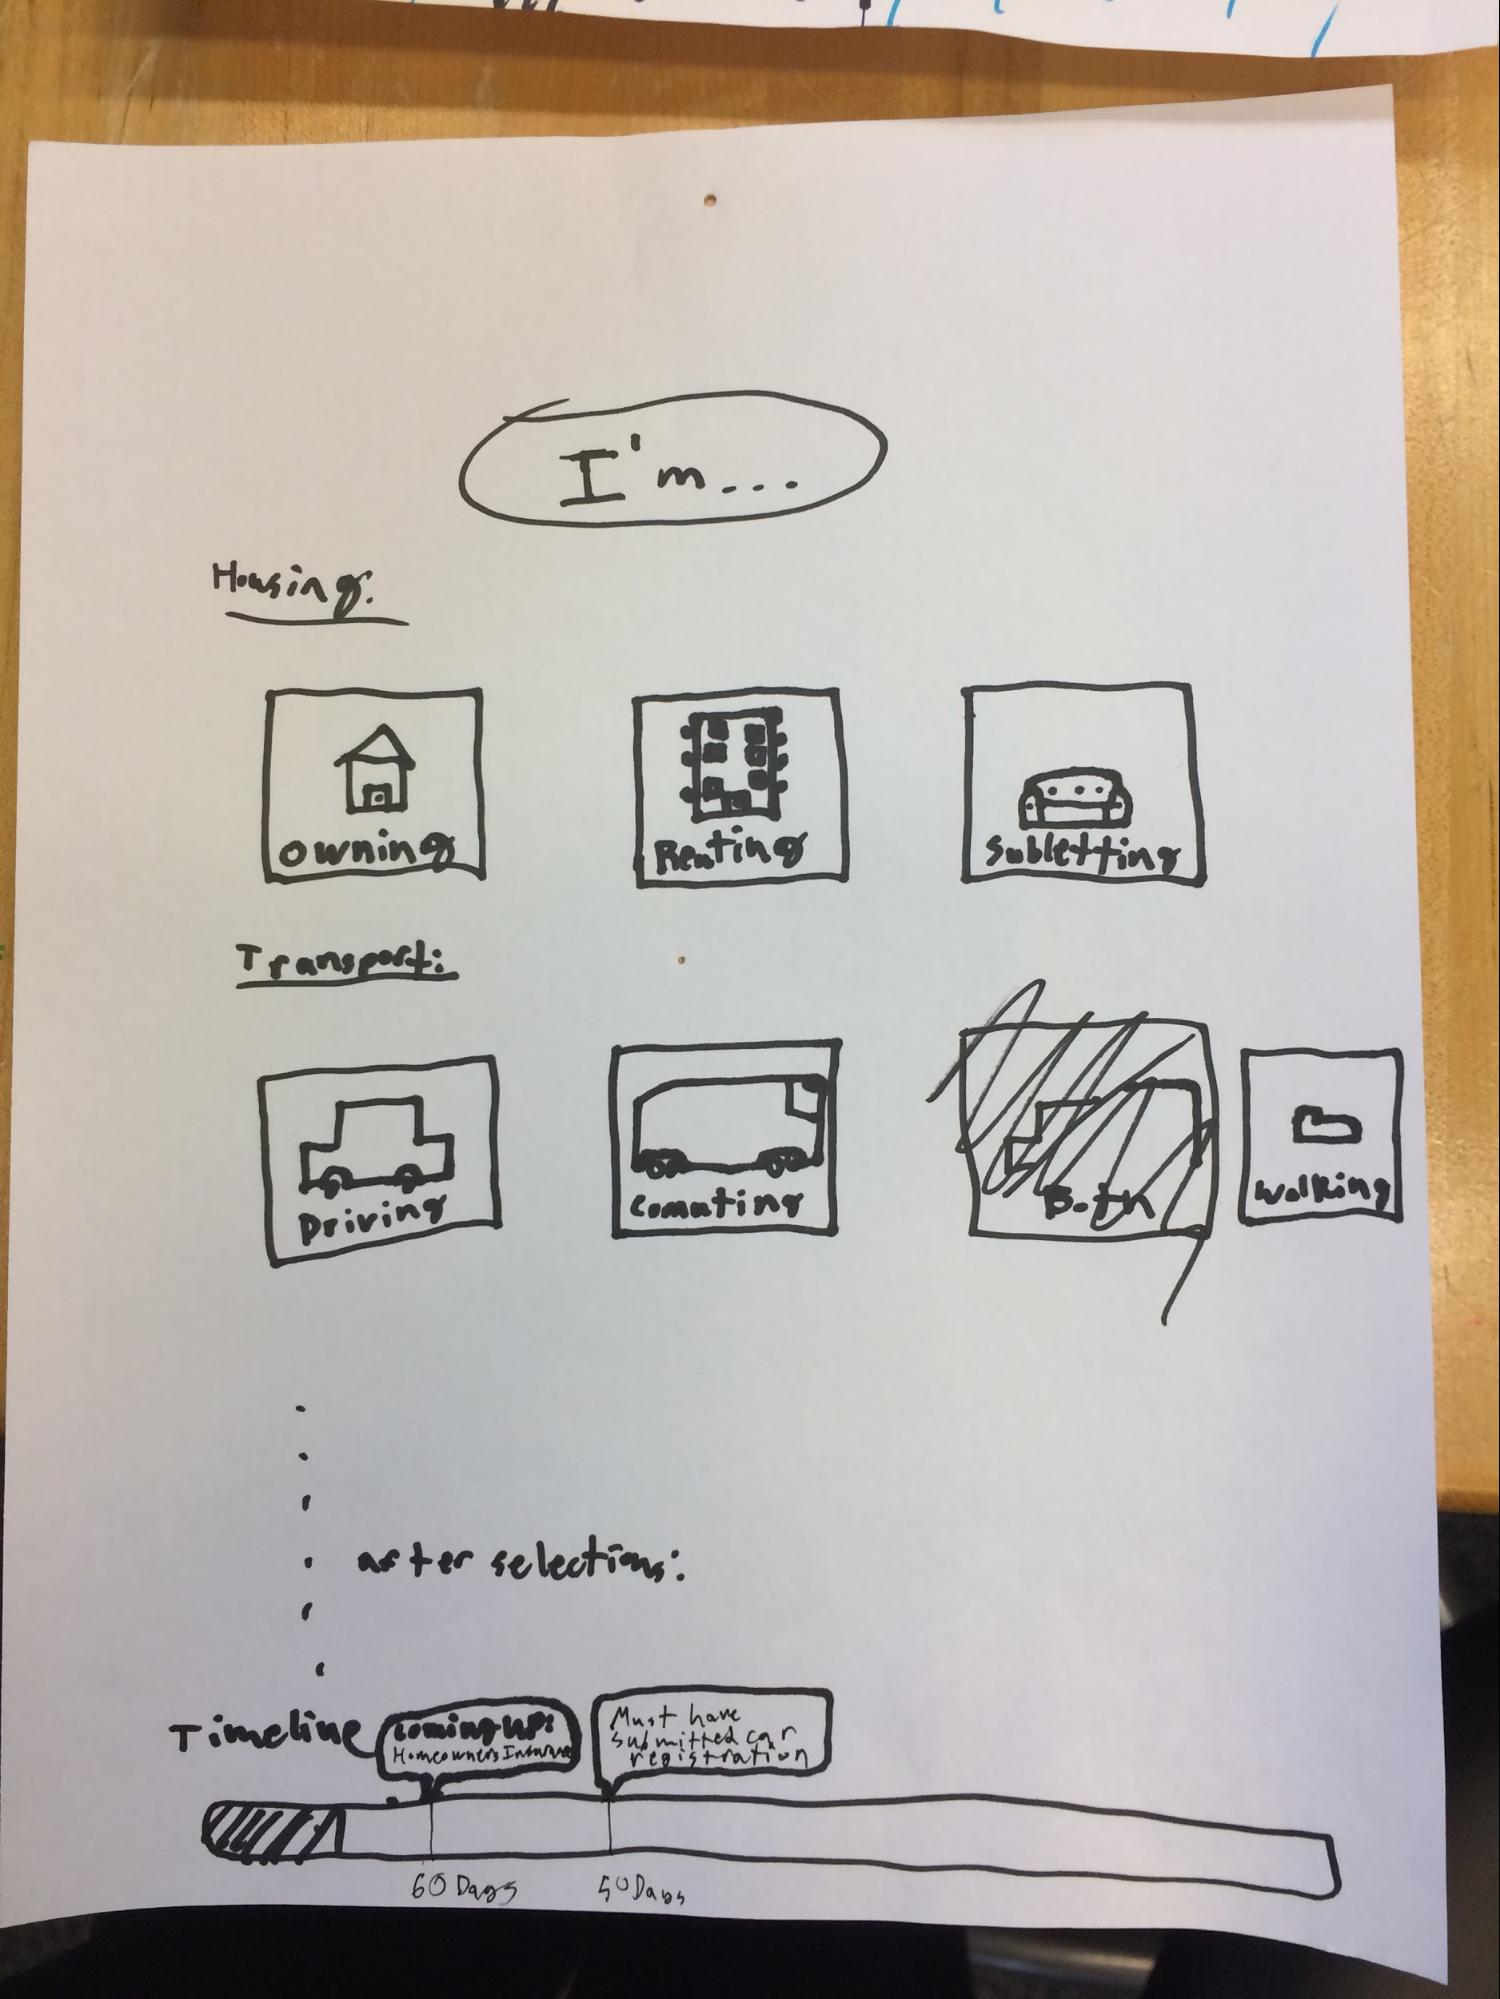 I'm...
Housing:
Owning
Renting
Subletting
Transport:
Driving
Comuting
Both
Walking
after selections:
Timeline
Coming up:
Homeowners
Must have
submitted car
registration
60 Days
50 Days